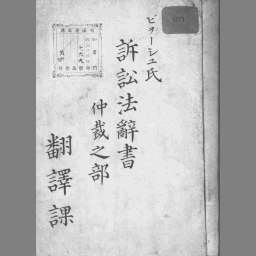 ビヲーシユ氏
訴訟法辭書
仲裁之部
翻譯課